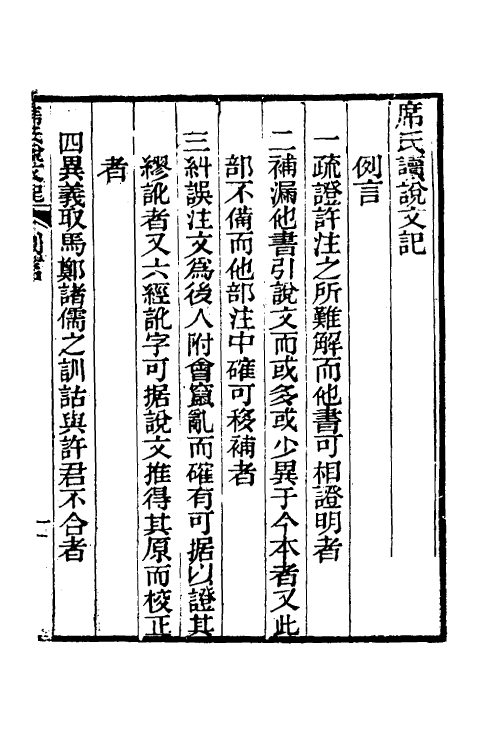 席氏讀說文記
例言
一疏證許注之所難解而他書可相證明者
二補漏他書引說文而或多或少異于今本者又此
部不備而他部注中確可移補者
三糾誤注文爲後人附會竄亂而確有可据以證其
繆訛者又六經訛字可据說文推得其原而校正
者
四異義取馬鄭諸儒之訓詁與許君不合者
席氏說文記
例言
一